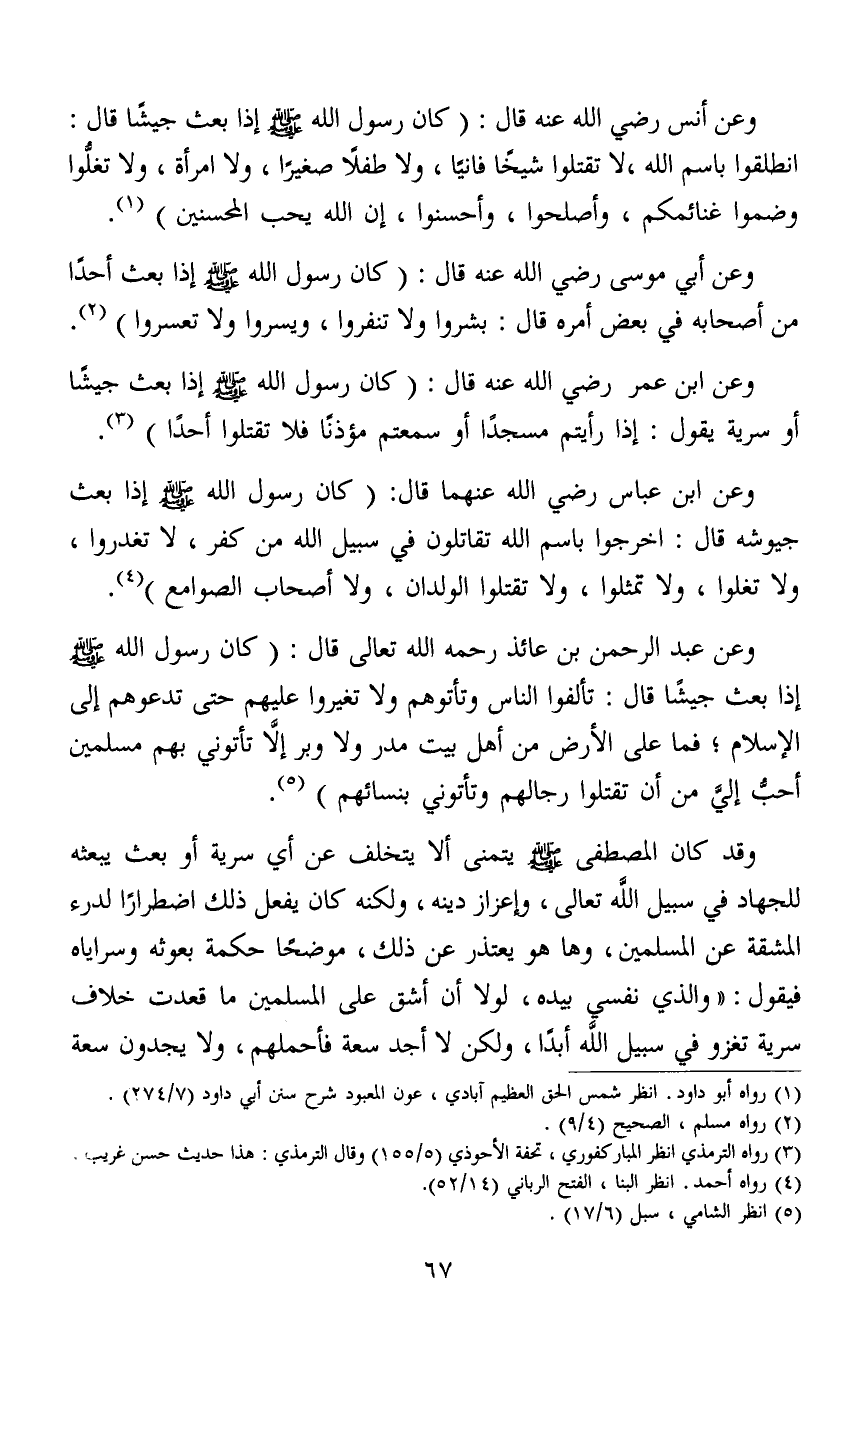 وعن أنس رضي الله عنه قال : ( كان رسول الله ﷺ إذا بعث جيشًا قال :
انطلقوا باسم الله ،لا تقتلوا شيخًا فانيًا ، ولا طفلًا صغيرًا ، ولا امرأة ، ولا تغلُّوا
وضموا غنائمكم ، وأصلحوا ، وأحسنوا ، إن الله يحب المحسنين ) (١).
وعن أبي موسى رضي الله عنه قال : ( كان رسول الله ﷺ إذا بعث أحدًا
من أصحابه في بعض أمره قال : بشروا ولا تنفروا ، ويسروا ولا تعسروا ) (٢).
وعن ابن عمر رضي الله عنه قال : ( كان رسول الله ﷺ إذا بعث جيشًا
أو سرية يقول : إذا رأيتم مسجدًا أو سمعتم مؤذنًا فلا تقتلوا أحدًا ) (٣).
وعن ابن عباس رضي الله عنهما قال: ( كان رسول الله ﷺ إذا بعث
جيوشه قال : اخرجوا باسم الله تقاتلون في سبيل الله من كفر ، لا تغدروا ،
ولا تغلوا ، ولا تمثلوا ، ولا تقتلوا الولدان ، ولا أصحاب الصوامع )(٤).
وعن عبد الرحمن بن عائذ رحمه الله تعالى قال : ( كان رسول الله ﷺ
إذا بعث جيشًا قال : تألفوا الناس وتأتوهم ولا تغيروا عليهم حتى تدعوهم إلى
الإسلام ؛ فما على الأرض من أهل بيت مدر ولا وبر إلَّا تأتوني بهم مسلمين
أحبُّ إليَّ من أن تقتلوا رجالهم وتأتوني بنسائهم ) (٥).
وقد كان المصطفى ﷺ يتمنى ألا يتخلف عن أي سرية أو بعث يبعثه
للجهاد في سبيل اللَّه تعالى ، وإعزاز دينه ، ولكنه كان يفعل ذلك اضطرارًا لدرء
المشقة عن المسلمين ، وها هو يعتذر عن ذلك ، موضحًا حكمة بعوثه وسراياه
فيقول : « والذي نفسي بيده ، لولا أن أشق على المسلمين ما قعدت خلاف
سرية تغزو في سبيل اللَّه أبدًا ، ولكن لا أجد سعة فأحملهم ، ولا يجدون سعة
(١) رواه أبو داود . انظر شمس الحق العظيم آبادي ، عون المعبود شرح سنن أبي داود (٢٧٤/٧) .
(٢) رواه مسلم ، الصحيح (٩/٤) .
(٣) رواه الترمذي انظر المباركفوري ، تحفة الأحوذي (١٥٥/٥) وقال الترمذي : هذا حديث حسن غريب .
(٤) رواه أحمد . انظر البنا ، الفتح الرباني (٥٢/١٤).
(٥) انظر الشامي ، سبل (١٧/٦) .
٦٧